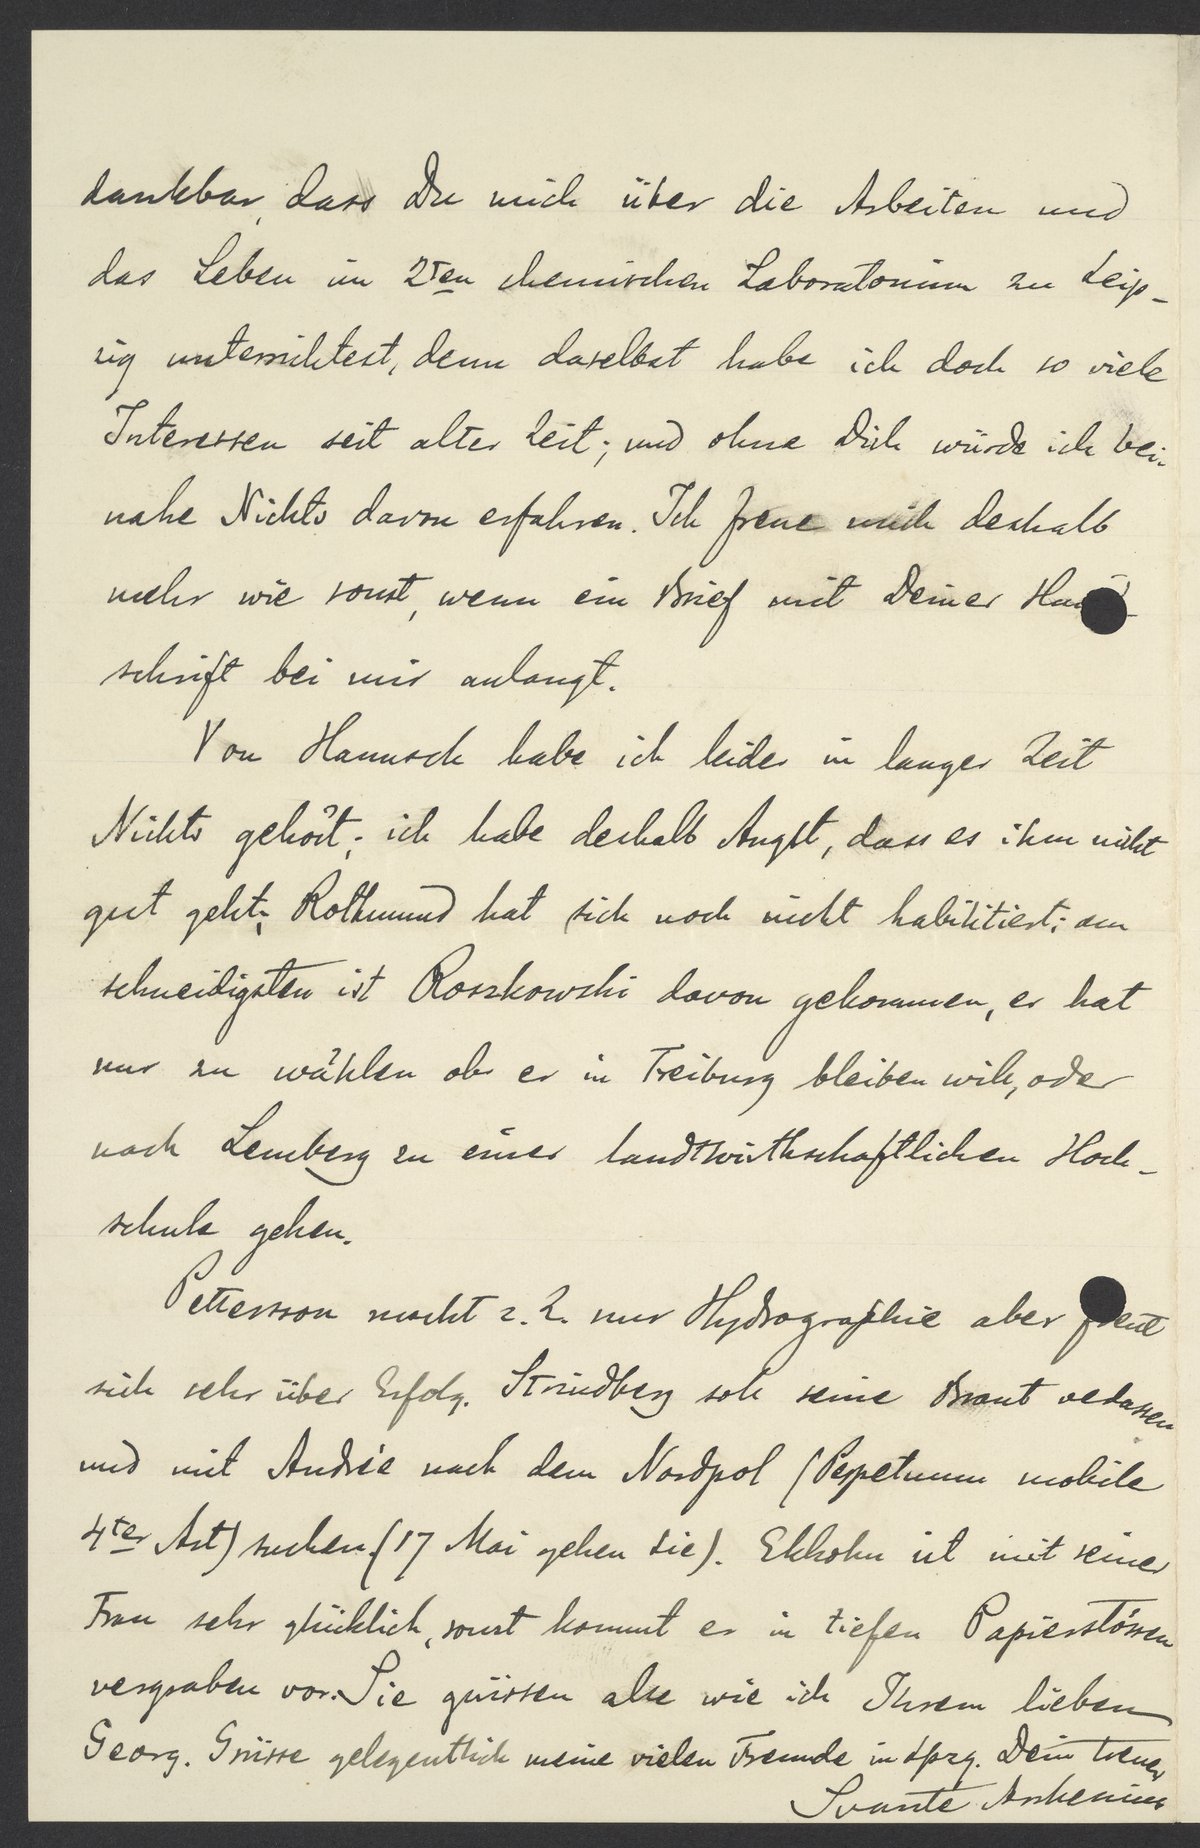 dankbar, dass Du mich über die Arbeiten und
das Leben im 2ten chemischen Laboratorium zu Leip-
zig unterrichtest, denn daselbst habe ich doch so viele
Interessen seit alter Zeit; und ohne Dich würde ich bei-
nahe Nichts davon erfahren. Ich freue mich deshalb
mehr wie sonst, wenn ein Brief mit Deiner Hand-
schrift bei mir anlangt.
Von Hanusch habe ich leider in langer Zeit
Nichts gehört; ich habe deshalb Angst, dass es ihm nicht
gut geht; Rothmund hat sich noch nicht habilitiert; am
schneidigsten ist Roszkowski davon gekommen, er hat
nur zu wählen ob er in Freiburg bleiben will, oder
nach Lemberg zu einer landtwirthschaftlichen Hoch-
schule gehen.
Pettersson macht z. Z. nur Hydrographie aber freut
sich sehr über Erfolg. Strindberg soll seine Braut verlassen
und mit Andrée nach dem Nordpol (Perpetuum mobile
4ter Art) suchen (17 Mai gehen sie). Ekholm ist mit seiner
Frau sehr glücklich, sonst kommt er in tiefen Papierstössen
vergraben vor. Sie grüssen alle wie ich Ihrem lieben
Georg. Grüsse gelegentlich meine vielen Freunde in Lpzg. Dein treuer
Svante Arrhenius